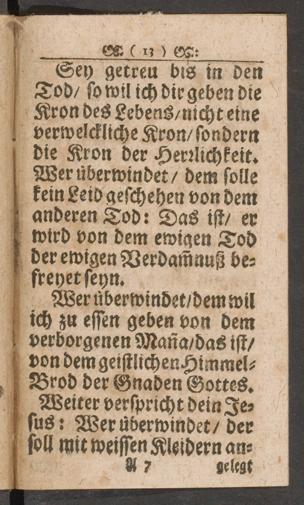 ( 13 )
Sey getreu bis in den
Tod/ so wil ich dir geben die
Kron des Lebens/nicht eine
verwelckliche Kron/sondern
die Kron der Herꝛlichkeit.
Wer überwindet / dem solle
kein Leid geschehen von dem
anderen Tod: Das ist/ er
wird von dem ewigen Tod
der ewigen Verdam̃nuß be⸗
freyet seyn.
Wer überwindet/dem wil
ich zu essen geben von dem
verborgenen Maña/das ist/
von dem geistlichen Himmel⸗
Brod der Gnaden Gottes.
Weiter verspricht dein Je⸗
sus: Wer überwindet/ der
soll mit weissen Kleidern an⸗
A 7 gelegt